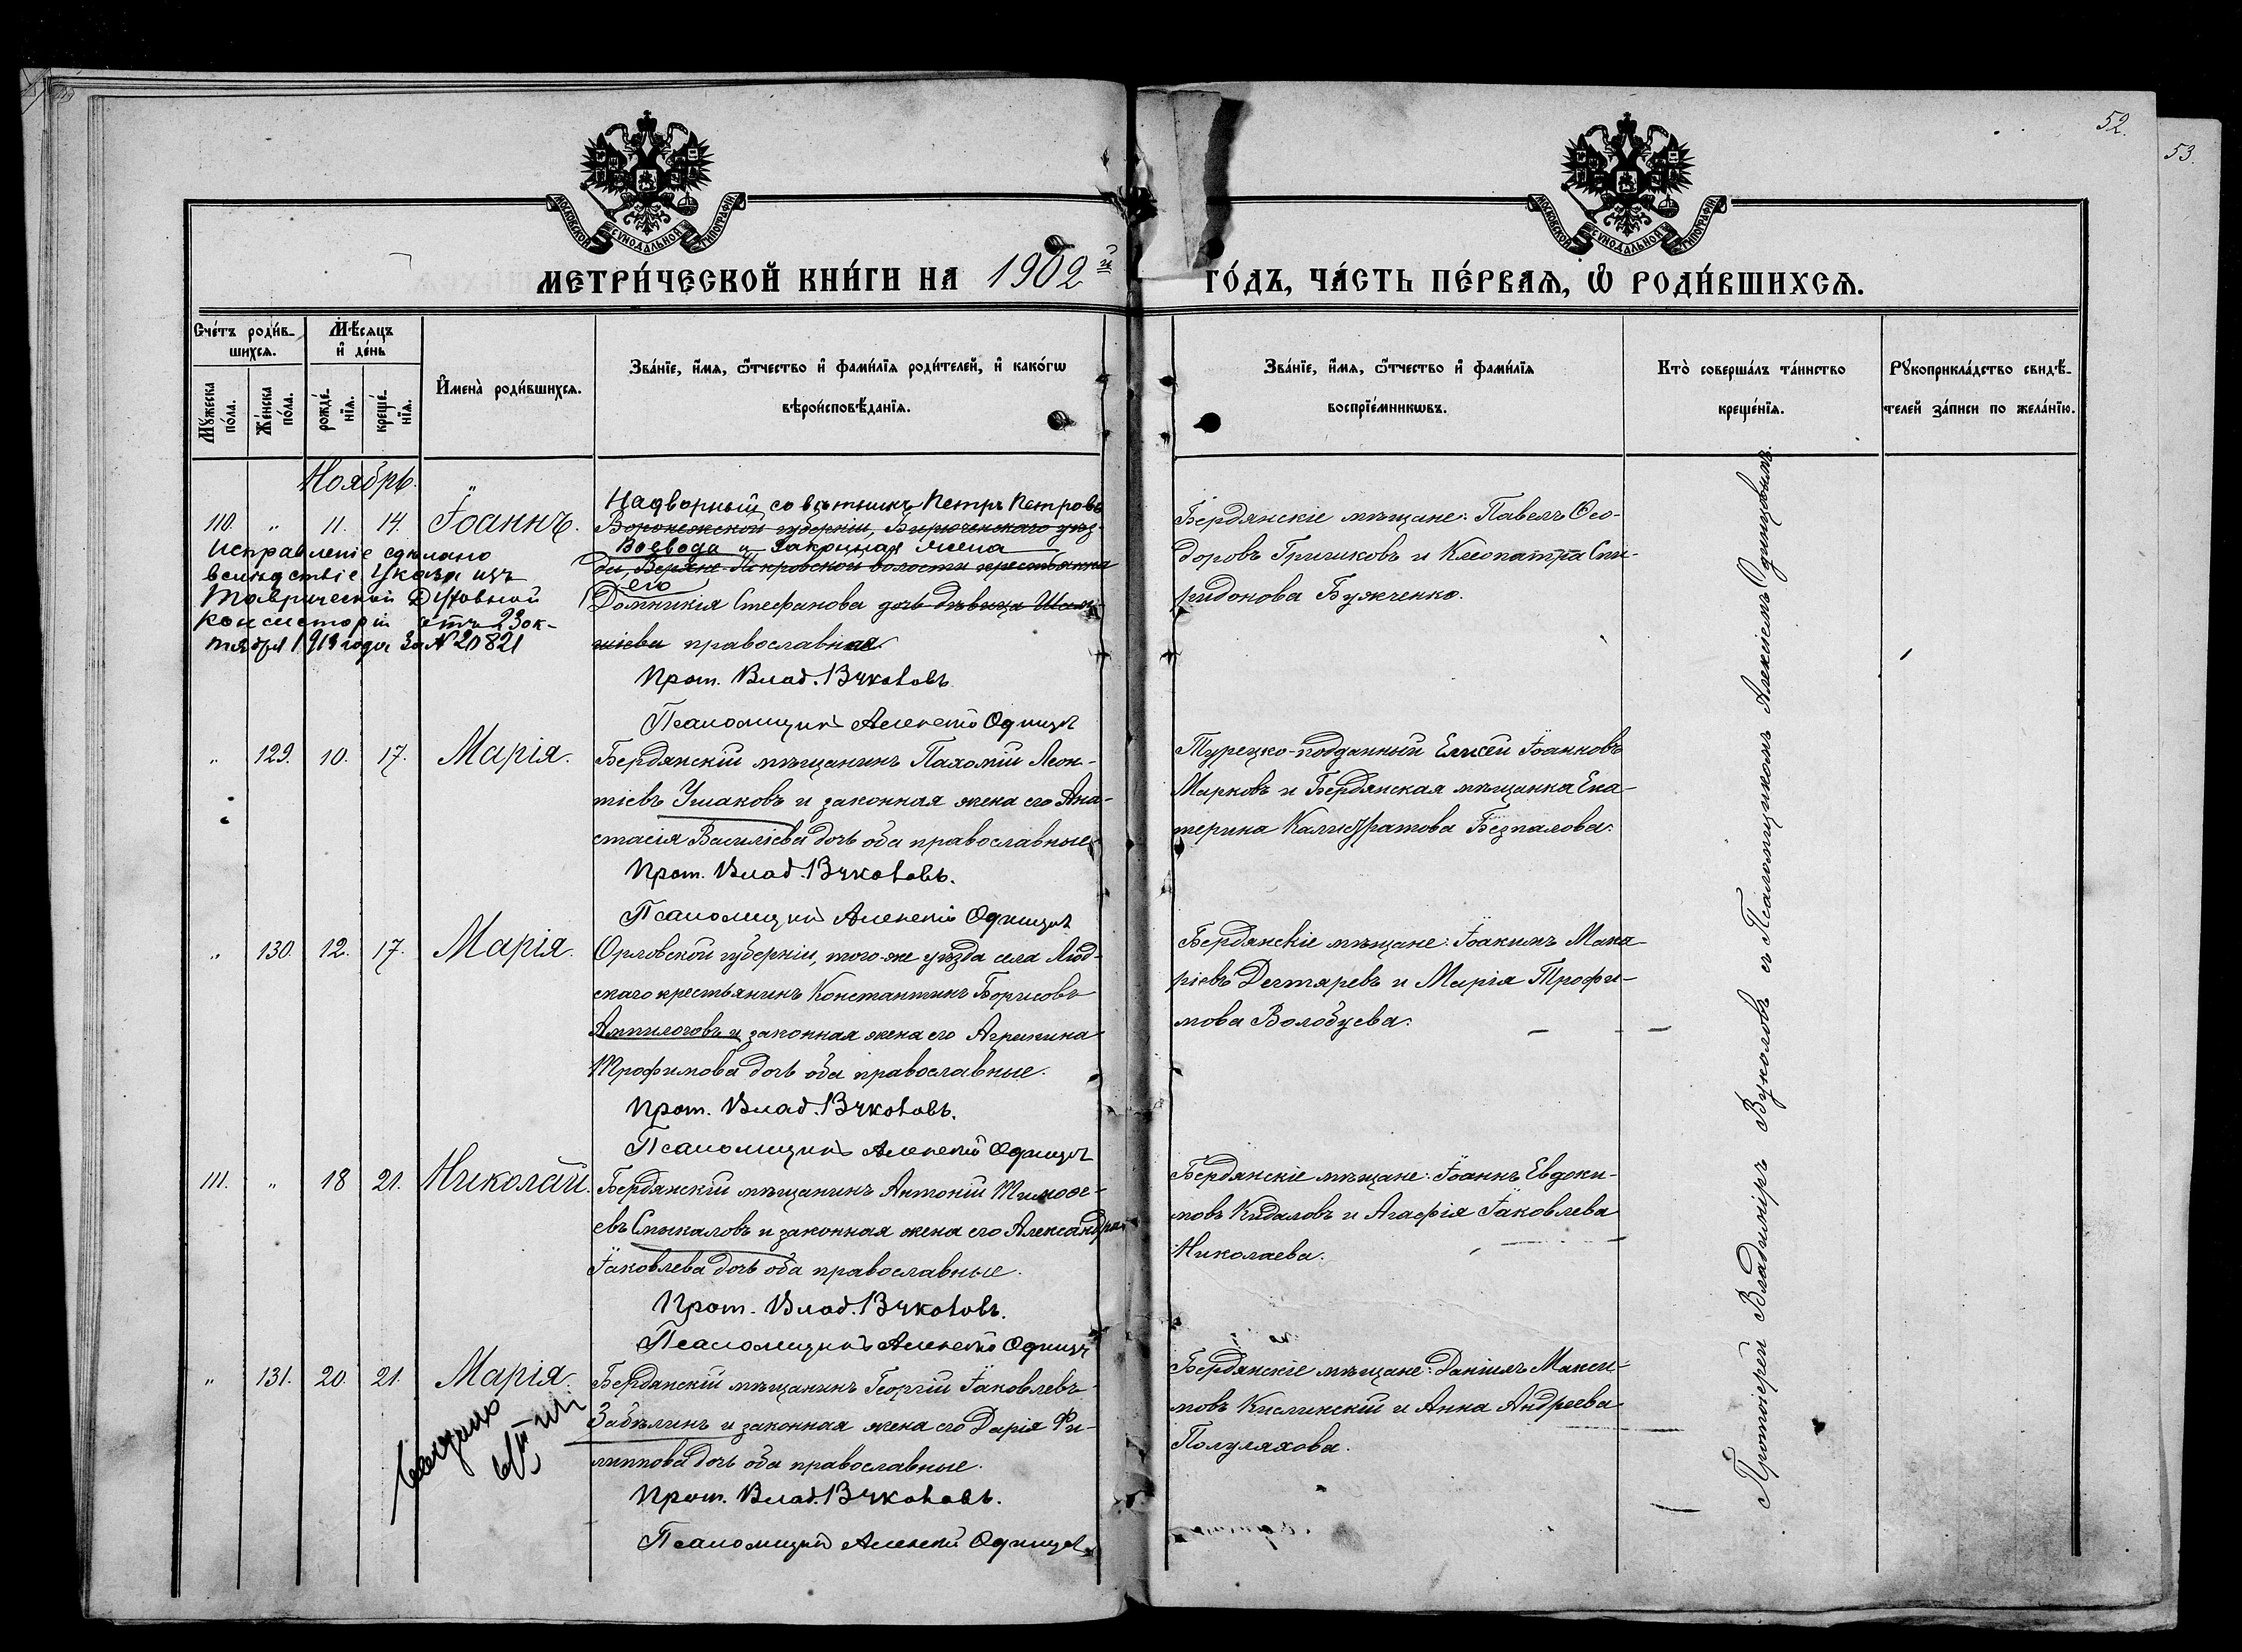 52.
53.
МОСКОВСКОЙ СѴНОДАЛЬНОЙ ТИПОГРАФІИ
МОСКОВСКОЙ СѴНОДАЛЬНОЙ ТИПОГРАФІИ
МЕТРИ́ЧЕСКОЙ КНИ́ГИ НА 1902й
ГО́ДЪ, ЧА́СТЬ ПЕ́РВАѦ, Ѡ҆ РОДИ́ВШИХСѦ.
Сче́тъ роди́в-
шихсѧ.
Мꙋ́жеска по́ла.
Же́нска по́ла.
Мѣ́сѧцъ
и҆ де́нь
рожде́-
нїѧ.
креще́-
нїѧ.
И҆мена̀ роди́вшихсѧ.
Зва́нїе, и҆́мѧ, ѻ҆́тчество и҆ фами́лїѧ роди́телей, и҆ како́гѡ
вѣроисповѣ́данїѧ.
Зва́нїе, и҆́мѧ, ѻ҆́тчество и҆ фами́лїѧ
воспрїе́мникѡвъ.
Кто̀ соверша́лъ та́инство
креще́нїѧ.
Рꙋкоприкла́дство свидѣ́-
телей за́писи по жела́нїю.
Ноябрь.
110. " 11. 14. Іоаннъ.
Исправленіе сдѣлано
вслѣдствіе Указа изъ
Таврической Духовной
Консисторіи отъ 23 ок-
тября 1913 года за № 20821
Надворный совѣтникъ Петръ Петровъ
Воронежской губерніи, Бирюченскаго уѣз-
Воевода и законная жена
ды, Верхне-Покровской волости крестьянка
его
Домникія Стефанова дочь дѣвица
православная.
Прот. Влад. Вуколовъ.
Псаломщикъ Алексѣй Одинцовъ
Бердянскіе мѣщане: Павелъ Ѳео-
доровъ Гришковъ и Клеопатра Спи-
ридонова Бужченко.
" 129. 10. 17. Марія.
Бердянскій мѣщанинъ Пахомій Леон-
тіевъ Ушаковъ и законная жена его Ана-
стасія Василіева дочь оба православные
Прот. Влад. Вуколовъ.
Псаломщикъ Алексѣй Одинцовъ
Турецко-подданный Елисей Іоанновъ
Марковъ и Бердянская мѣщанка Ека-
терина Калистратова Безпалова.
" 130. 12. 17. Марія.
Орловской губерніи, того-же уѣзда села Люд-
скаго крестьянинъ Константинъ Борисовъ
Ампилоговъ и законная жена его Агрипина
Трофимова дочь оба православные.
Прот. Влад. Вуколовъ.
Псаломщикъ Алексѣй Одинцовъ
Бердянскіе мѣщане: Іоакимъ Мака-
ріевъ Дегтяревъ и Марія Трофи-
мова Волобуева.
111. " 18 21. Николай.
Бердянскій мѣщанинъ Антоній Тимоѳе-
евъ Смыкаловъ и законная жена его Александра
Іаковлева дочь оба православные.
Прот. Влад. Вуколовъ.
Псаломщикъ Алексѣй Одинцовъ
Бердянскіе мѣщане: Іоаннъ Евдоки-
мовъ Кидаловъ и Агафія Іаковлева
Николаева.
" 131. 20. 21. Марія.
Бердянскій мѣщанинъ Георгій Іаковлевъ
Забѣлинъ и законная жена его Дарія Фи-
липпова дочь оба православные.
Прот. Влад. Вуколовъ.
Псаломщикъ Алексѣй Одинцовъ
Бердянскіе мѣщане: Даніилъ Макси-
мовъ Кислинскій и Анна Андреева
Полуляхова.
Протоіерей Владиміръ Вуколовъ съ Псаломщикомъ Алексіемъ Одинцовымъ.